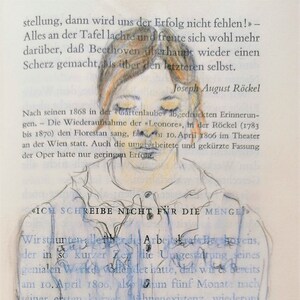 stellung, dann wird uns der Erfolg nicht fehlen!« –
Alles an der Tafel lachte und freute sich wohl mehr
darüber, daß Beethoven überhaupt wieder einen
Scherz gemacht, als über den letzteren selbst.
Joseph August Röckel
Nach seinen 1868 in der »Gartenlaube« abgedruckten Erinnerun-
gen. – Die Wiederaufnahme der »Leonore«, in der Röckel (1783
bis 1870) den Florestan sang, fand am 10. April 1806 im Theater
an der Wien statt. Auch die umgearbeitete und gekürzte Fassung
der Oper hatte nur geringen Erfolg.
»ICH SCHREIBE NICHT FÜR DIE MENGE«
Wir
der in kurzer für die Umgestaltung seines
genialen Werkes hatte, daß bereits
am 10. April 1806, also fünf Monate nach